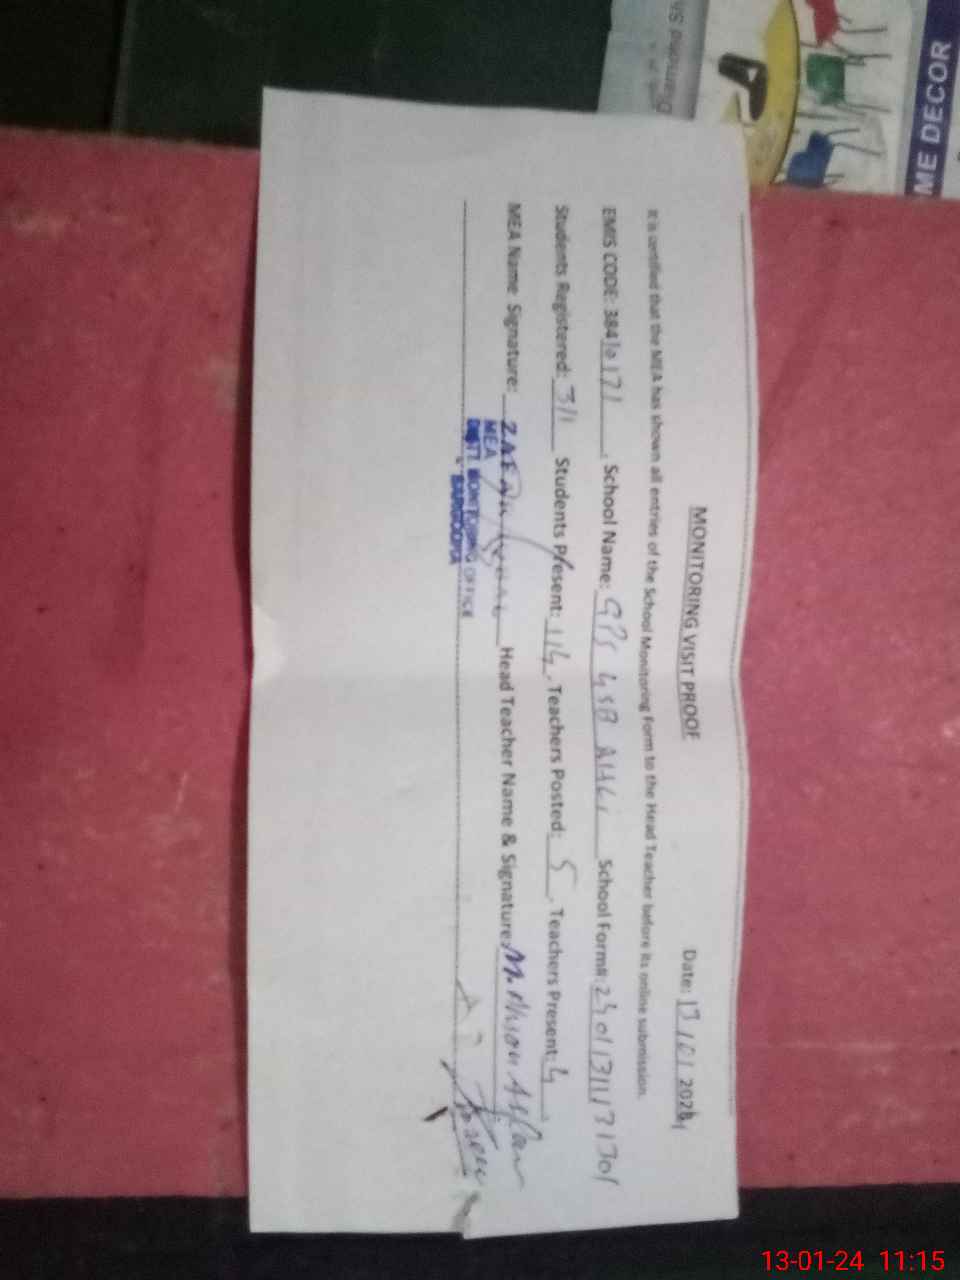 MONITORING VISIT PROOF
Date: 13/01/2024
It is certified that the MEA has shown all entries of the School Monitoring Form to the Head Teacher before its online submission.
EMIS CODE: 38410171, School Name: GPS 45B School Form#:
Students Registered: 311 Students Present: 114, Teachers Posted: 5, Teachers Present: 4
MEA Name Signature: ZAFAR IQBAL Head Teacher Name & Signature: M. Ahsan
MEA
DISTT. MONITORING OFFICE
SARGODHA
ME DECOR
13-01-24 11:15